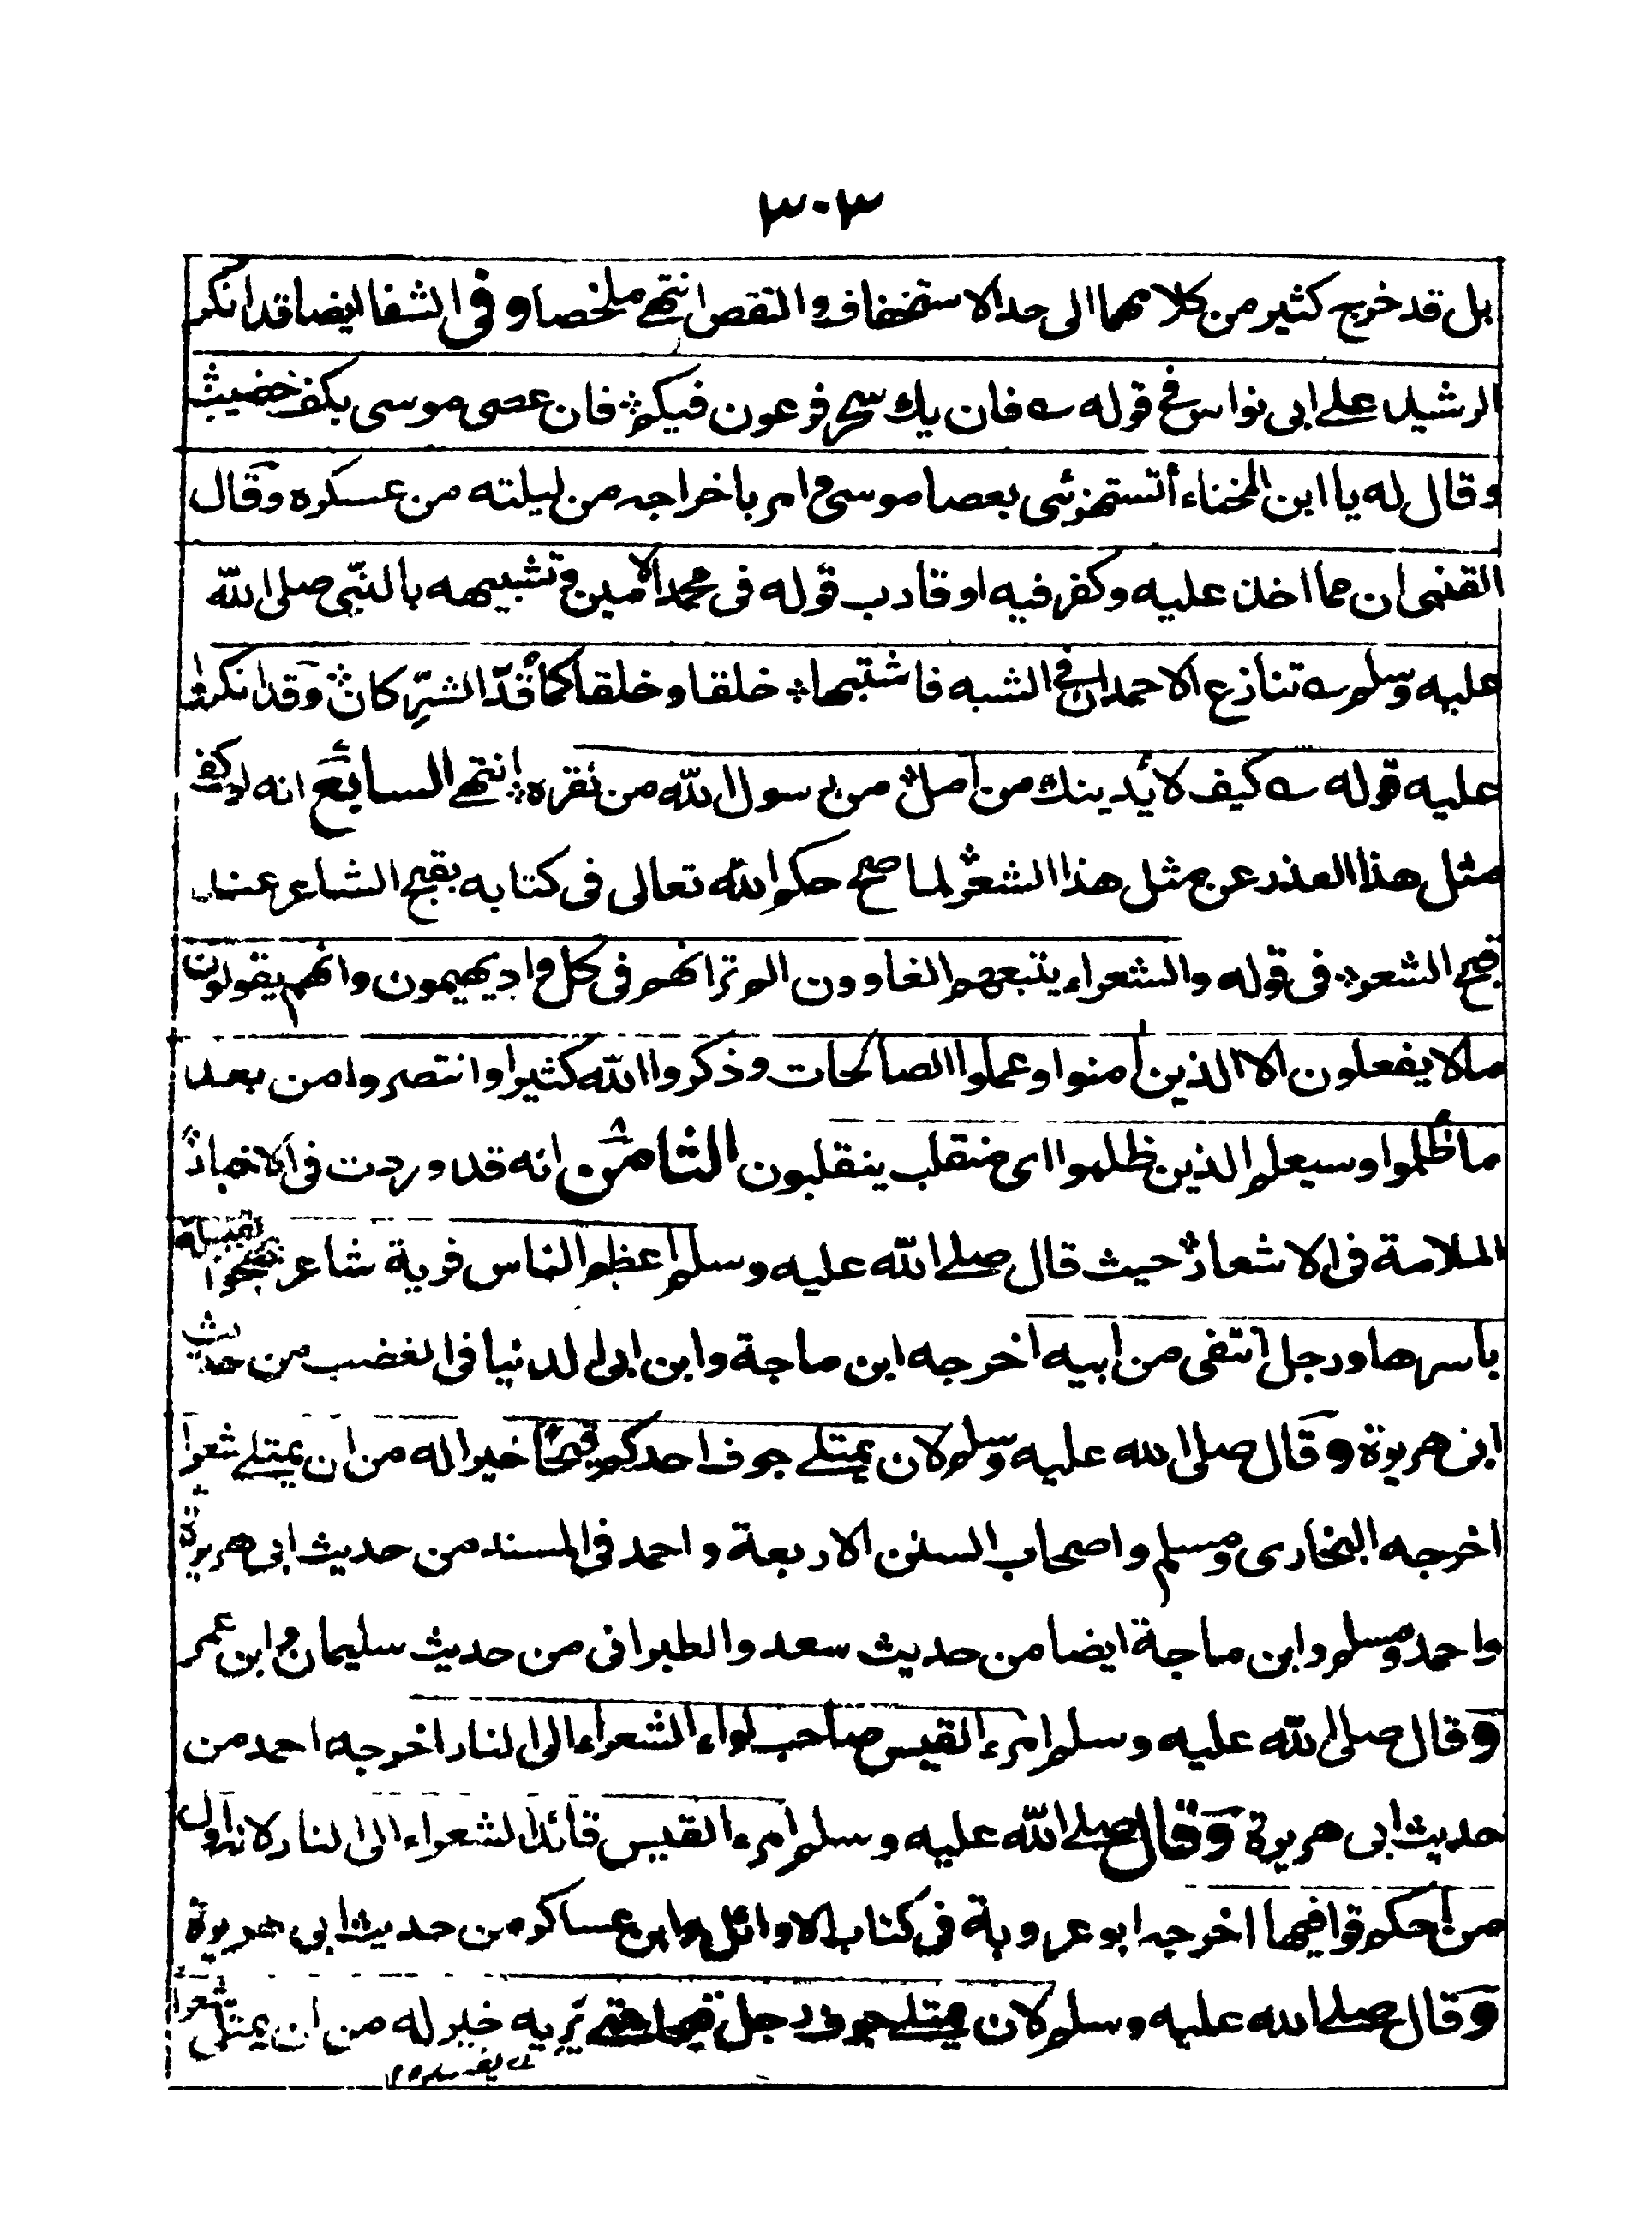 ٣٠٣
بل قد خرج كثير من كلامهما الى حد الاستخفاف والنقص انتهے ملخصا و فى الشفا ايضا قد انكر
الرشيد علے ابى نواس فے قوله ؎ فان يك سحر فرعون فيكم ؞ فان عصى موسى بكف خضيب ؞
وقال له يا ابن اللخناء أتستهزئى بعصا موسى و امر باخراجه من ليلته من عسكره وقال
القتبى ان مما اخذ عليه وكفر فيه او قارب قوله فى محمد الامين و تشبيهه بالنبّى صلى الله
عليه وسلم ؎ تنازع الاحمدان فے الشبه فاشتبها ؞ خلقا وخلقا كما قُدّ الشرِّ كان ؞ وقد انكروا
عليه قوله ؎ كيف لا يُدينك من اَمل ؞ من رسول الله من نفره ؞ انتهے السابع انه لو كف
مثل هذا العذر عن مثل هذا الشعر ؞ لما صح حكم الله تعالى فى كتابه بقبح الشاعر عند
قبح الشعر ؞ فى قوله والشعراء يتبعهم الغاوون الم تر انهم فى كل واد يهيمون وانهم يقولون
مالا يفعلون الا الذين اٰمنوا وعملوا الصالحات وذكروا الله كثيرا وانتصروا من بعد
ما ظلموا وسيعلم الذين ظلموا اى منقلب ينقلبون الثامن انه قد وردت فى الاخبار ؞
الملامة فى الاشعار ؞ حيث قال صلے الله عليه وسلم اعظم الناس فرية شاعر يهجوا القبيلة
باسرها ورجل انتفى من ابيه اخرجه ابن ماجة وابن ابى الدنيا فى الغضب من حديث
ابى هريرة وقال صلى الله عليه وسلم لان يمتلے جوف احدكم قيحًا خيرا له من ان يمتلے شعرا
اخرجه البخارى ومسلم واصحاب السنن الاربعة و احمد فى المسند من حديث ابى هريرة
واحمد ومسلم وابن ماجة ايضا من حديث سعد والطبرانى من حديث سليمان و ابن عمر
وقال صلى الله عليه وسلم امرء القيس صاحب لواء الشعراء الى النار اخرجه احمد من
حديث ابى هريرة وقال صلے الله عليه وسلم امرء القيس قائد الشعراء الى النار لانه اول
من احكم قوافيها اخرجه ابو عروبة فى كتاب الاوائل وابن عساكر من حديث ابى هريرة
وقال صلے الله عليه وسلم لان يمتلے جوف رجل قيحا حتے يَرِيه خير له من ان يمتلى شعرا